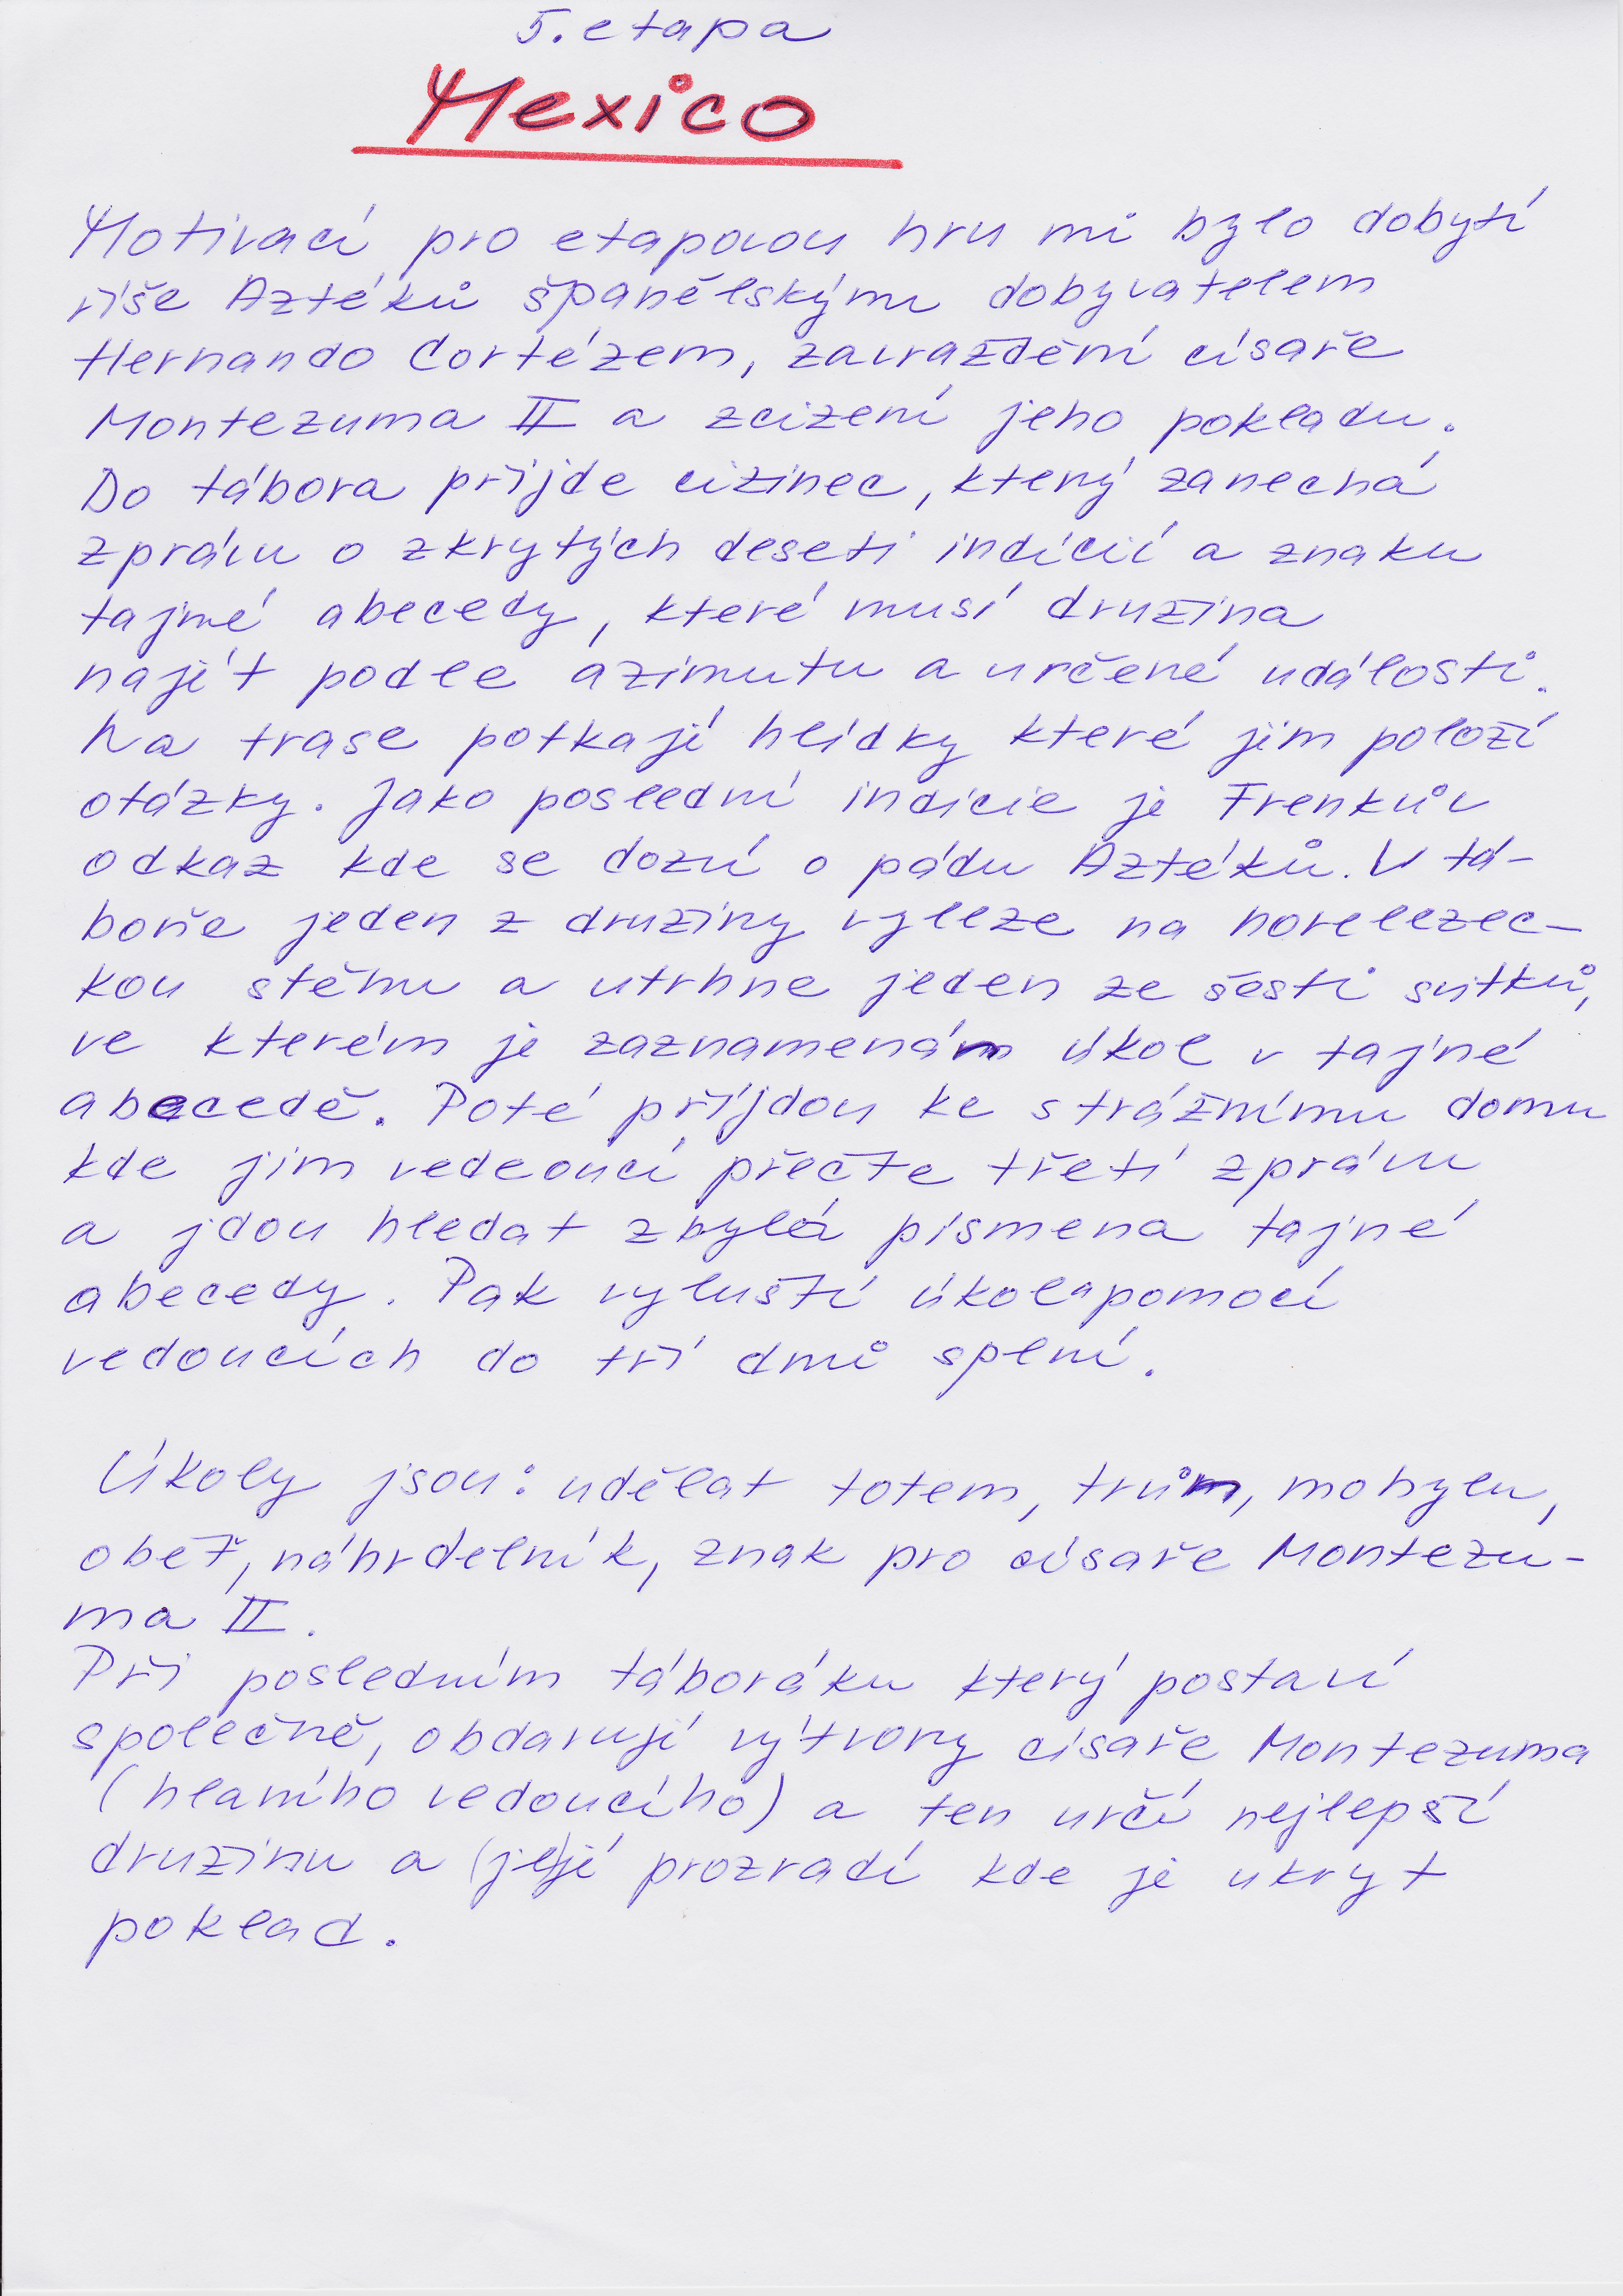 5. etapa
Mexico
Motivací pro etapovou hru mi bylo dobytí
říše Aztéků španělským dobyvatelem
Hernando Cortézem, zavraždění císaře
Montezuma II a zcizení jeho pokladu.
Do tábora přijde cizinec, který zanechá
zprávu o zkrytých deseti indicií a znaku
tajné abecedy, které musí družina
najít podle azimutu a určené události.
Na trase potkají hlídky které jim položí
otázky. Jako poslední indicie je Frenkův
odkaz kde se dozví o pádu Aztéků. V tá-
boře jeden z družiny vyleze na horelezec-
kou stěnu a utrhne jeden ze šesti svitků,
ve kterém je zaznamenán úkol v tajné
abecedě. Poté příjdou ke strážnímu domu
kde jim vedeoucí přečte třetí zprávu
a jdou hledat zbylá písmena tajné
abecedy. Pak vyluští úkol a pomocí
vedoucích do tří dnů splní.
Úkoly jsou: udělat totem, trůn, mohylu,
oběť, náhrdelník, znak pro císaře Montezu-
ma II.
Při posledním táboráku který postaví
společně, obdarují výtvory císaře Montezuma
(hlavního vedoucího) a ten určí nejlepší
družinu a (je)jí prozradí kde je ukryt
poklad.